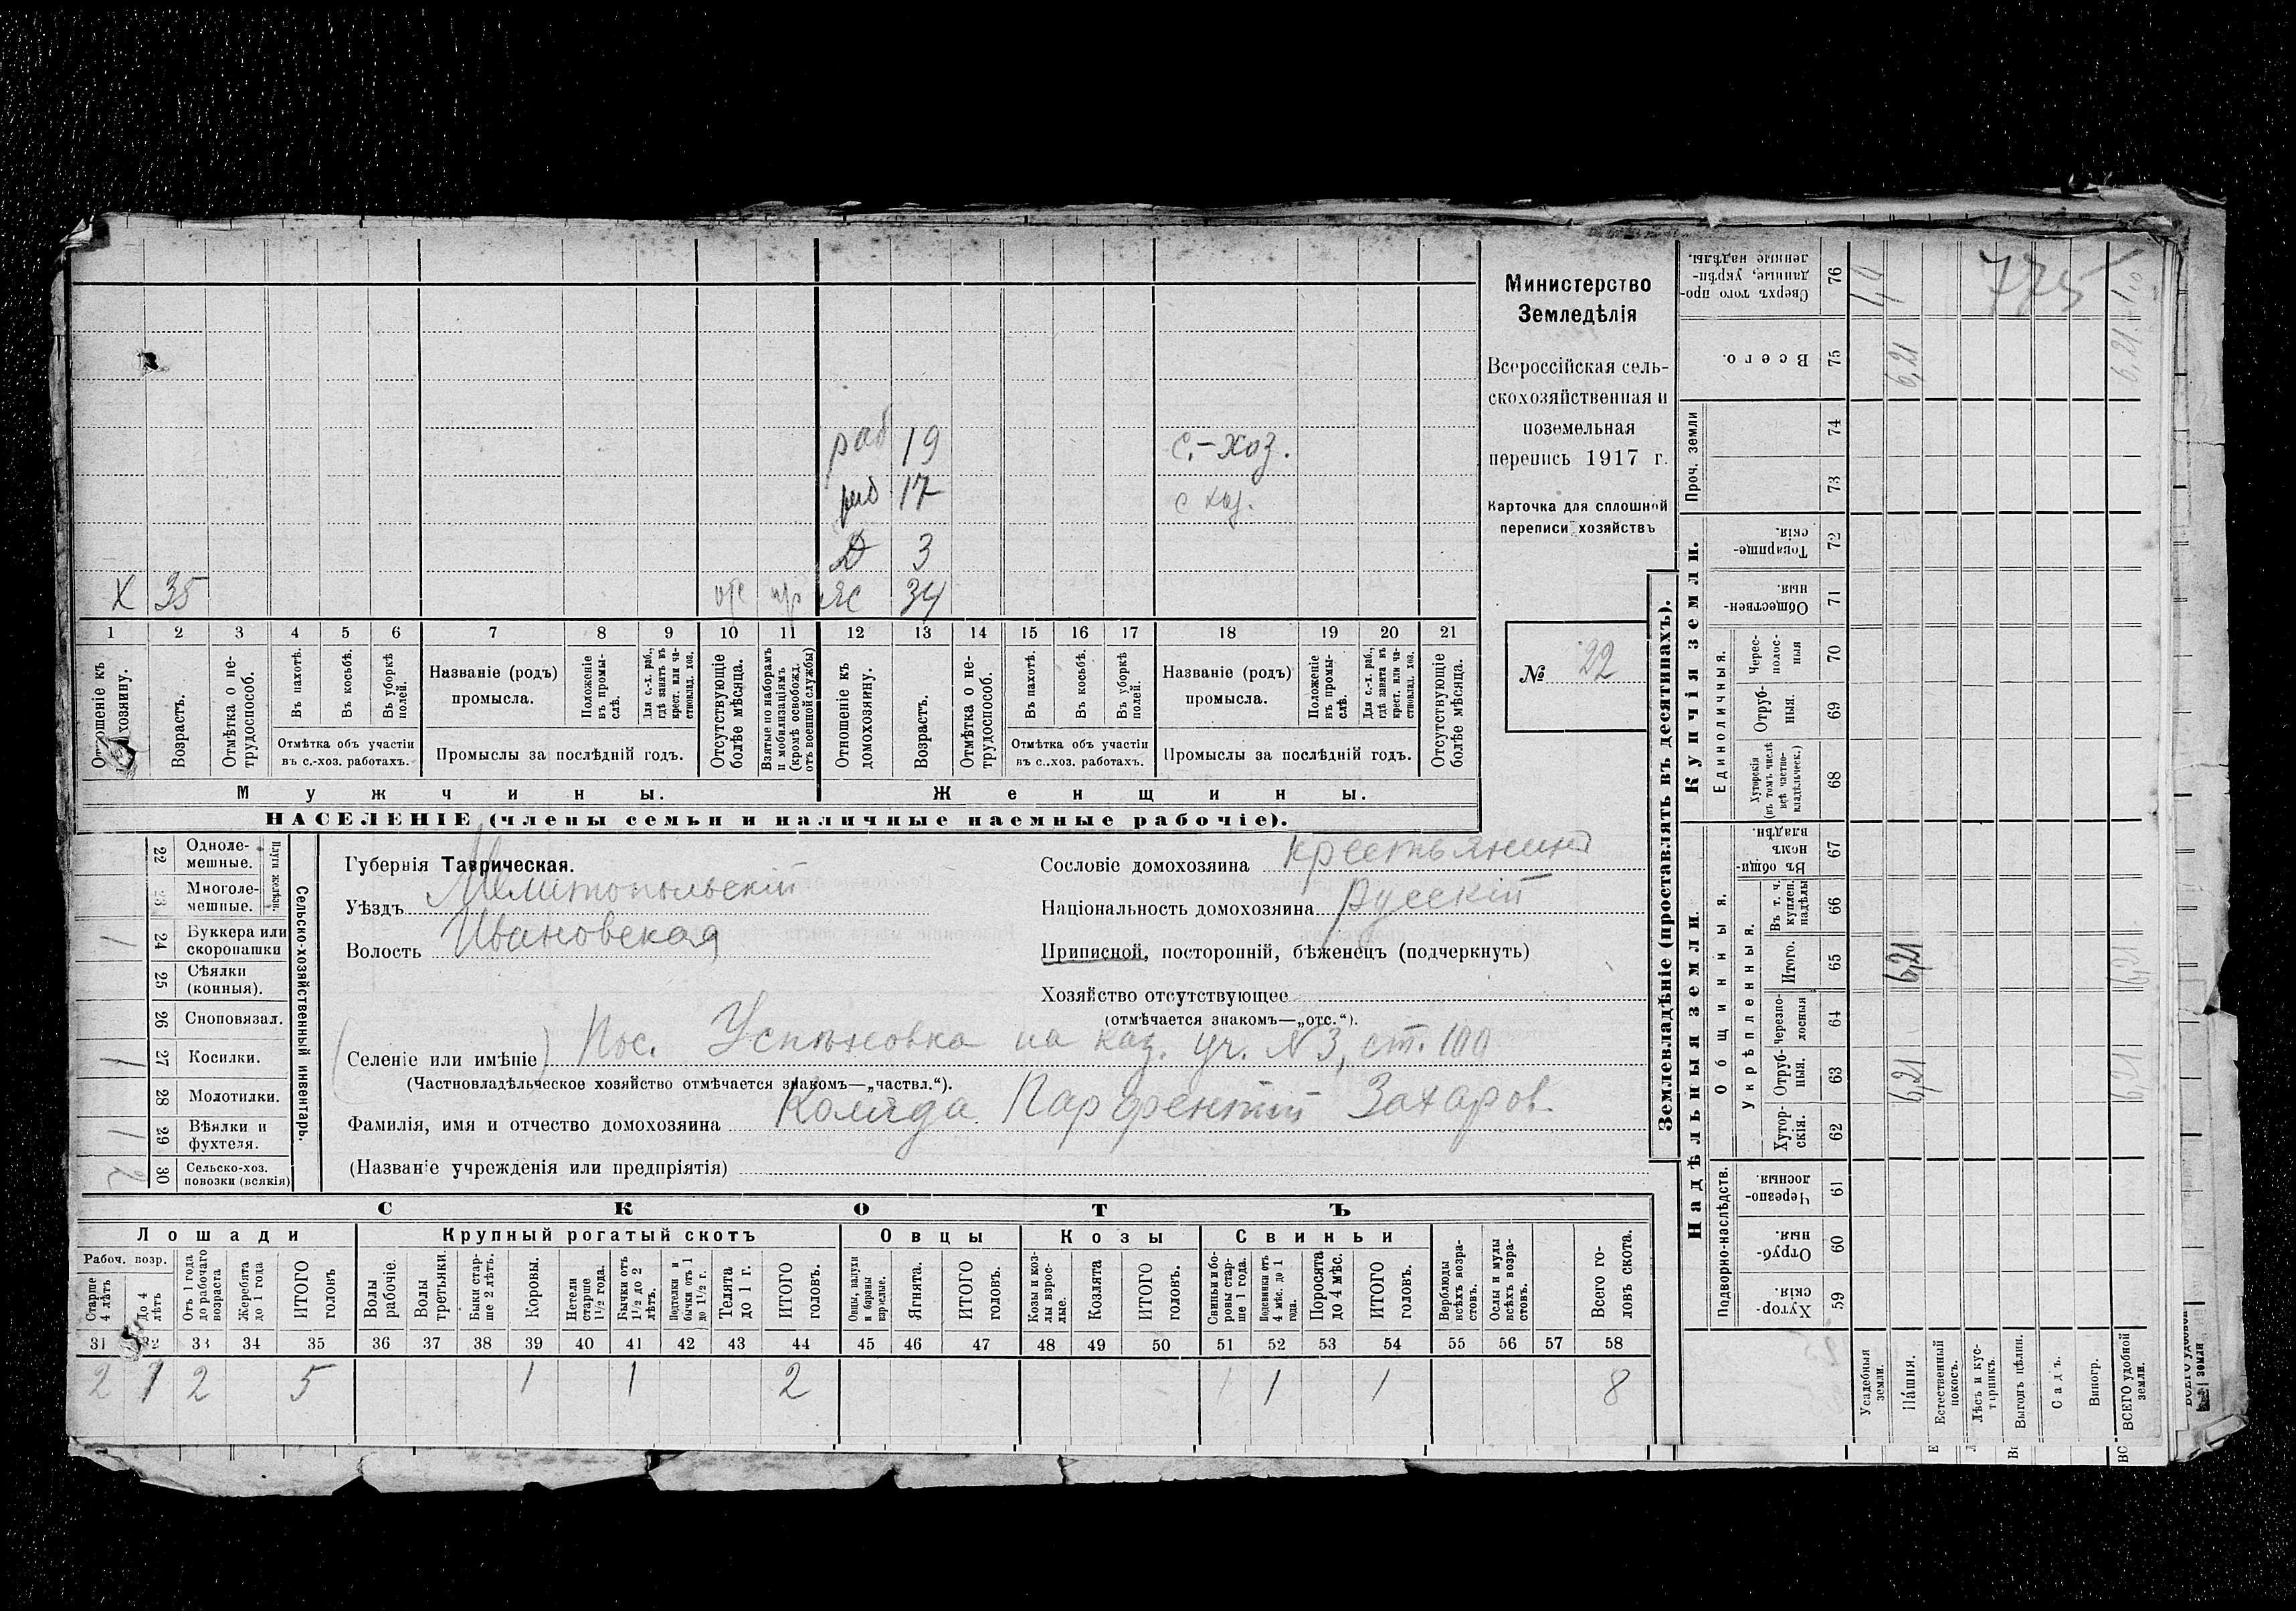 Министерство
Земледѣлія
Всероссійская сель-
скохозяйственная и
поземельная
перепись 1917 г.
Карточка для сплошной
переписи хозяйствъ
№ 22
раб 19 с.-хоз.
раб 17 с хоз.
Д 3
Х 35 отс пр Ж 34
1 2 3 4 5 6 7 8 9 10 11 12 13 14 15 16 17 18 19 20 21
Отношеніе къ домохозяину.
Возрастъ.
Отмѣтка о не-трудоспособ.
Въ пахотѣ.
Въ косьбѣ.
Въ уборкѣ полей.
Отмѣтка объ участіи
въ с.-хоз. работахъ.
Названіе (родъ)
промысла.
Положеніе въ промы-слѣ.
Для с.-х. раб., гдѣ занятъ въ крест. или ча-стновлад. хоз.
Промыслы за послѣдній годъ.
Отсутствующіе болѣе мѣсяца.
Взятые по наборамъ и мобилизаціямъ (кромѣ освобожд. отъ военной службы)
Отношеніе къ домохозяину.
Возрастъ.
Отмѣтка о не-трудоспособ.
Въ пахотѣ.
Въ косьбѣ.
Въ уборкѣ полей.
Отмѣтка объ участіи
въ с.-хоз. работахъ.
Названіе (родъ)
промысла.
Положеніе въ промы-слѣ.
Для с.-х. раб., гдѣ занята въ крест. или ча-стновлад. хоз.
Промыслы за послѣдній годъ.
Отсутствующіе болѣе мѣсяца.
Мужчины. Женщины.
НАСЕЛЕНІЕ (члены семьи и наличные наемные рабочіе).
Сельско-хозяйственный инвентарь.
Плуги желѣзн.
22 Одноле-мешные.
23 Многоле-мешные.
1 24 Буккера или скоропашки
25 Сѣялки (конныя).
26 Сноповязал.
1 27 Косилки.
28 Молотилки.
1 29 Вѣялки и фухтеля.
2 30 Сельско-хоз. повозки (всякія)
Губернія Таврическая.
Уѣздъ Мелитопольскій
Волость Ивановская
Сословіе домохозяина крестьянинъ
Національность домохозяина русскій
Приписной, посторонній, бѣженецъ (подчеркнуть)
Хозяйство отсутствующее
(отмѣчается знакомъ—„отс.“).
(Селеніе или имѣніе) Пос. Успѣновка на каз. уч. N 3, ст. 100
(Частновладѣльческое хозяйство отмѣчается знакомъ—„частвл.“).
Фамилія, имя и отчество домохозяина Коляда Парфентій Захаров.
(Названіе учрежденія или предпріятія)
СКОТЪ
Лошади Крупный рогатый скотъ Овцы Козы Свиньи
Рабоч. возр.
Старше 4 лѣтъ
До 4 лѣтъ
Отъ 1 года до рабочаго возраста
Жеребята до 1 года
ИТОГО головъ
Волы рабочіе.
Волы третьяки.
Быки стар-ше 2 лѣтъ.
Коровы.
Нетели старше 1½ года.
Бычки отъ 1½ до 2 лѣтъ.
Подтелки и бычки отъ 1 до 1½ г.
Телята до 1 г.
ИТОГО головъ.
Овцы, валухи и бараны взрослые.
Ягнята.
ИТОГО головъ.
Козы и коз-лы взрос-лые.
Козлята
ИТОГО головъ.
Свиньи и бо-ровы стар-ше 1 года.
Подсвинки отъ 4 мѣс. до 1 года.
Поросята до 4 мѣс.
ИТОГО головъ.
Верблюды всѣхъ возра-стовъ.
Ослы и мулы всѣхъ возра-стовъ.
Всего го-ловъ скота.
31 32 33 34 35 36 37 38 39 40 41 42 43 44 45 46 47 48 49 50 51 52 53 54 55 56 57 58
2 1 2 5 1 1 2 1 1 8
Землевладѣніе (проставлять въ десятинахъ).
Надѣльныя земли. Купчія земли. Проч. земли
Подворно-наслѣдств. Общинныя. Единоличныя.
Укрѣпленныя.
Хутор-скія. 59
Отруб-ныя. 60
Черезпо-лосныя. 61
Хутор-скія. 62
Отруб-ныя. 63
черезпо-лосныя 64
Итого. 65
Въ т. ч. куплен. надѣлы 66
Въ общи-номъ владѣн. 67
Хуторскія (въ томъ числѣ всѣ частно-владѣльческ.) 68
Отруб-ныя. 69
Черес-полос-ныя 70
Обществен-ныя. 71
Товарище-скія. 72
73
74
Всего. 75
Сверхъ того про-данные, укрѣп-ленные надѣлы. 76
Усадебныя земли. 1,0
Пашня. 6,21 6,21 6,21
Естественный покосъ.
Лѣсъ и кус-тарникъ.
Выгонъ цѣлин.
Садъ.
Виногр.
ВСЕГО удобной земли. 6,21 6,21 6,21 1,0
775